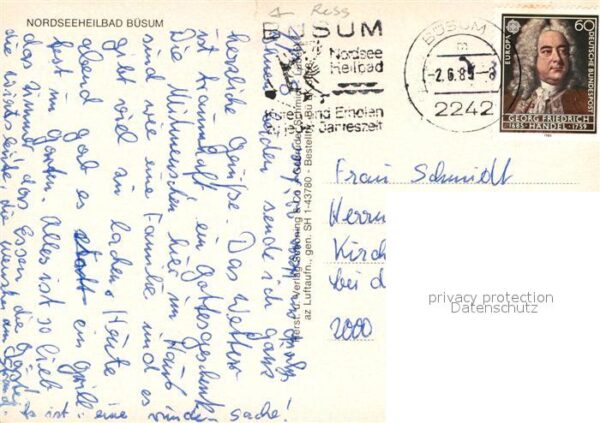 NORDSEEHEILBAD BÜSUM
BÜSUM
Nordsee
Heilbad
und Erholen
Jahreszeit
BÜSUM
m
-2.6.85-8
2242
EUROPA
60
DEUTSCHE BUNDESPOST
GEORG FRIEDRICH
1685·HÄNDEL·1759
sende ich ganz
herzliche Grüße. Das Wetter
ist traumhaft, ein Gottesgeschenk
Die Mitmenschen hier im Haus
sind wie eine Familie und es
gibt viel zu lachen. Heute
abend gab es ein Grill
fest im Garten. Alles ist so lieb
das Zimmer, das Essen, die Gäste
die Wirtsleute, die
es ist eine runde Sache!
Verlag Schöning & Co
az Luftaufn., gen. SH 1-43780 - Bestell
Frau Schmidt
Herrn
Kirch
bei d
2000
privacy protection
Datenschutz